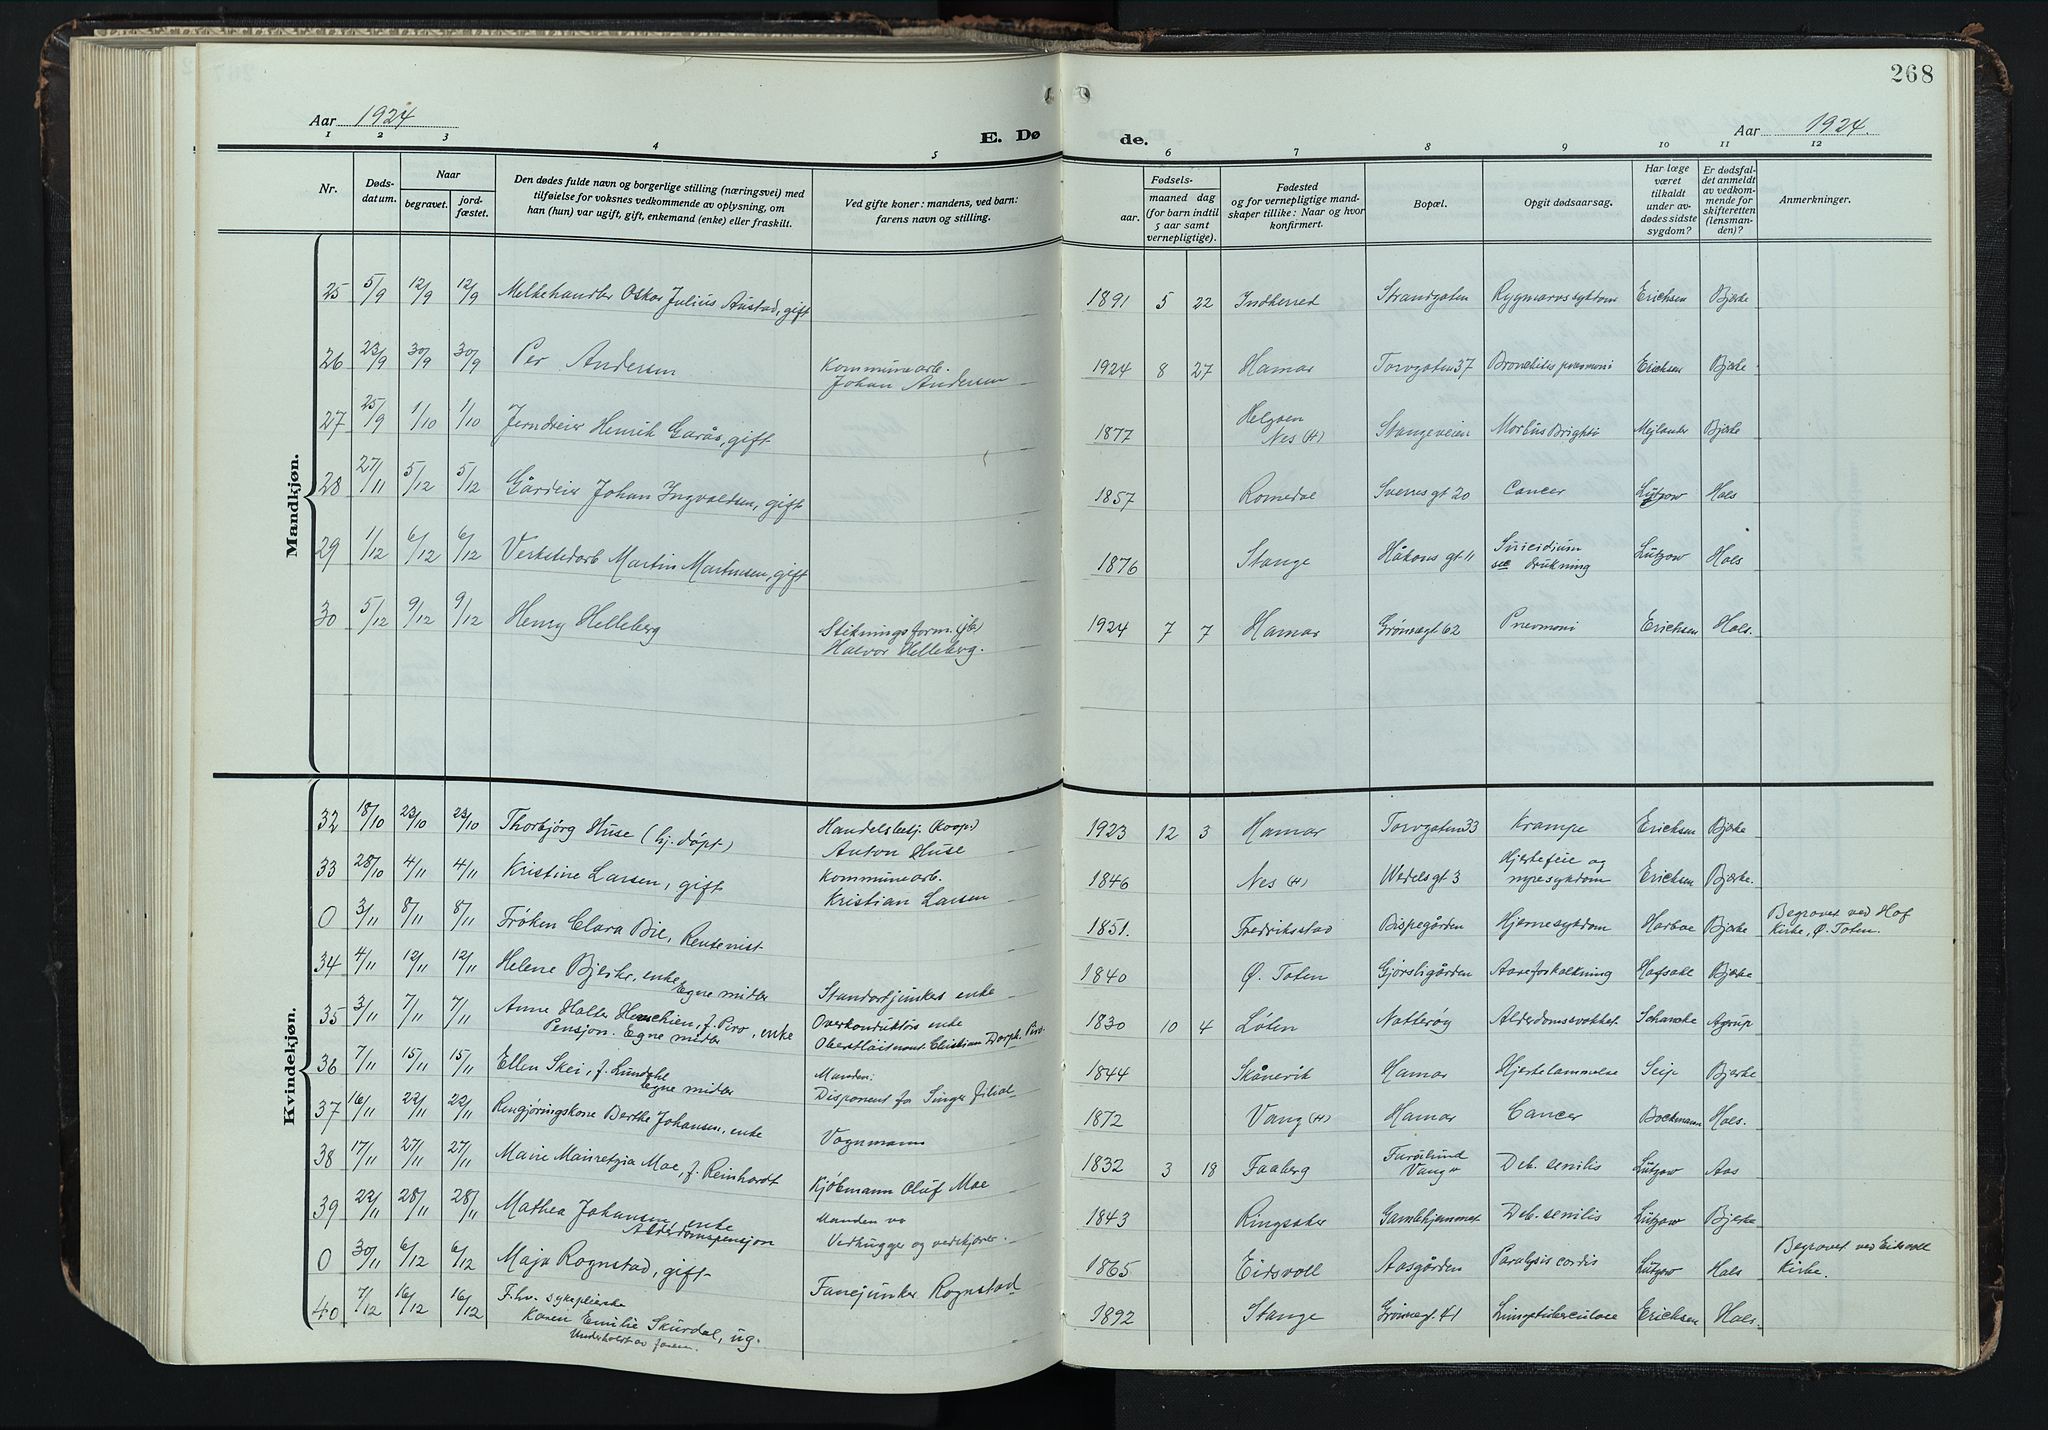 268
Aar 1924
E. Dø
de.
Aar 1924.
1 2 3 4 5 6 7 8 9 10 11 12
Nr.
Døds-
datum.
Naar
begravet.
jord-
fæstet.
Den dødes fulde navn og borgerlige stilling (næringsvei) med
tilføielse for voksnes vedkommende av oplysning, om
han (hun) var ugift, gift, enkemand (enke) eller fraskilt.
Ved gifte koner: mandens, ved barn:
farens navn og stilling.
Fødsels-
aar.
maaned dag
(for barn indtil
5 aar samt
vernepligtige).
Fødested
og for vernepligtige mand-
skaper tillike: Naar og hvor
konfirmert.
Bopæl.
Opgit dødsaarsag.
Har læge
været
tilkaldt
under av-
dødes sidste
sygdom?
Er dødsfal-
det anmeldt
av vedkom-
mende for
skifteretten
(lensman-
den)?
Anmerkninger.
Mandkjøn.
25 5/9 12/9 12/9 Melkehandler Oskar Julius Austad, gift 1891 5 22 Indherred Strandgaten Rygmarvssykdom Erichsen Bjerke
26 23/9 30/9 30/9 Per Andersen Kommunearb. Johan Andersen 1924 8 27 Hamar Torvgaten 37 Bronchitis pnevmoni Erichsen Bjerke
27 25/9 1/10 1/10 Jerndreier Henrik Garås, gift 1877 Helgøen Nes (H) Stangeveien Morbus Brighti Mejlander Bjerke
28 27/11 5/12 5/12 Gårdeier Johan Ingvaldsen, gift 1857 Romedal Sverres gt 20 Cancer Lützow Hols
29 1/12 6/12 6/12 Verkstedarb Martin Martinsen, gift 1876 Stange Håkons gt 11 Suicidium drukning Lützow Hols
30 5/12 9/12 9/12 Henry Helleberg Stikningsform. (jb) Halvor Helleberg. 1924 7 7 Hamar Grønnegt 62 Pnevmoni Erichsen Hols.
Kvindekjøn.
32 18/10 23/10 23/10 Thorbjörg Huse (hj. döpt) Handelsbestj. (Koop.) Anton Huse 1923 12 3 Hamar Torvgaten 33 Krampe Erichsen Bjerke
33 28/10 4/11 4/11 Kristine Larsen, gift Kommunearb. Kristian Larsen 1846 Nes (H) Wedels gt 3 Hjertefeil og nyresykdom Erichsen Bjerke.
0 3/11 8/11 8/11 Fröken Clara Bie, Rentenist 1851. Fredriksstad Bispegården Hjernesykdom Harboe Bjerke Begravet ved Hof Kirke, Ø. Toten.
34 4/11 12/11 12/11 Helene Bjerke, enke Egne midler Standartjunkers enke 1840 Ø. Toten Gjørsligården Aareforkalkning Hafsahl Bjerke
35 3/11 7/11 7/11 Anne Halter, f. Piro, enke Pensjon. Egne midler Overkonduktörs enke Oberstløitnant Christian Piro. 1830 10 4 Løten Nötterøy Alderdomssvakhet Schanche Agrup
36 7/11 15/11 15/11 Ellen Skei, f. Lundahl egne midler Manden: Disponent for Singer filial 1844 Skånevik Hamar Hjertelammelse Seip Bjerke
37 16/11 22/11 22/11 Rengjøringskone Berthe Johansen, enke Vognmann 1872 Vang (H) Hamar Cancer Bockmann Hols.
38 17/11 27/11 27/11 Marie Mauretzia Moe, f. Reinhardt Kjöbmann Oluf Moe 1832 3 18 Faaberg Furulund Vang H Deb. senilis Lützow Aas
39 22/11 28/11 28/11 Mathea Johansen, enke Alderdomspensjon Manden va Vedhugger og vedskjærer. 1843 Ringsaker Gamlehjemmet Deb. senilis Lützow Bjerke
0 30/11 6/12 6/12 Maja Rognstad, gift Fanejunker Rognstad 1865 Eidsvoll Aasgården Paralysis cordis Lützow Hols Begravet ved Eidsvoll Kirke.
40 7/12 16/12 16/12 F.hv. sykepleierske Karen Emilie Skurdal, ug. Underholdt av faren. 1892 Stange Grønnegt 41 Lungetuberculose Erichsen Hols.